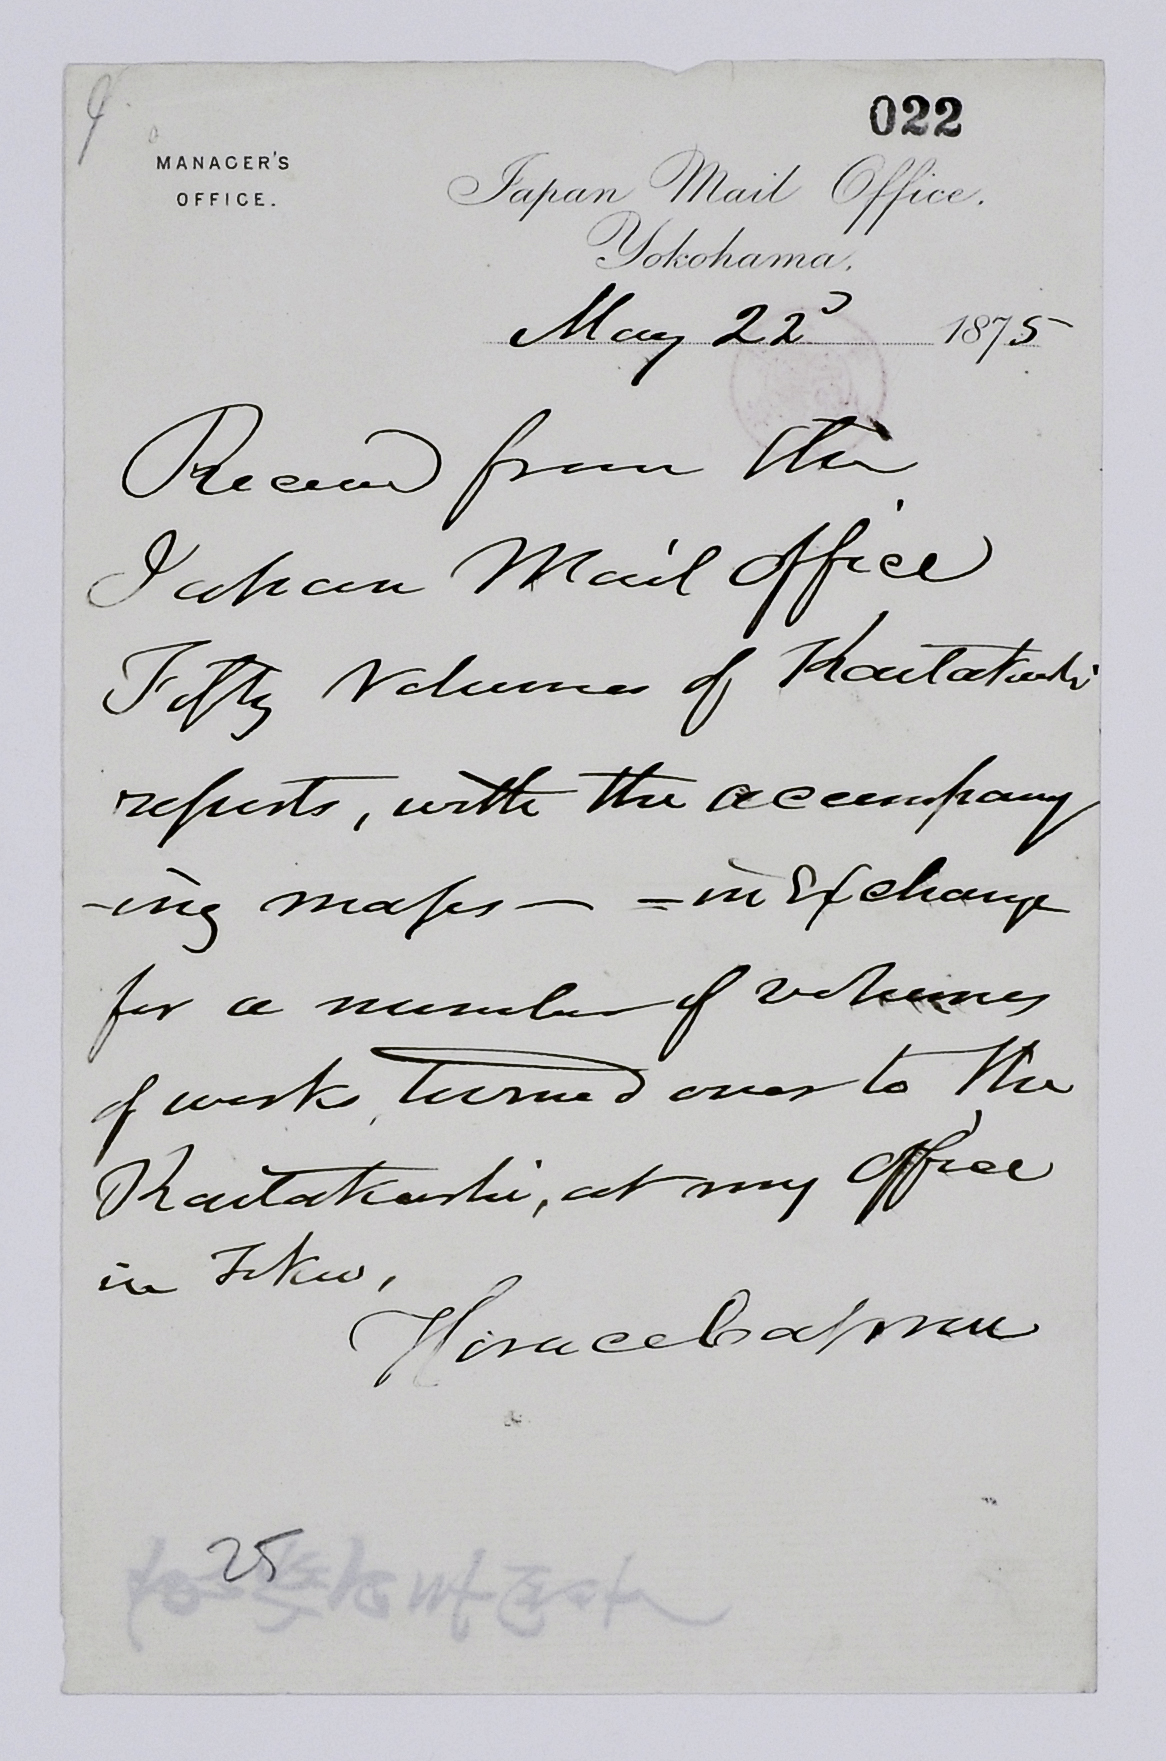 022
MANAGER'S
OFFICE.
Japan Mail Office.
Yokohama.
May 22d 1875
Received from the
Japan Mail Office
Fifty Volumes of Kaitakushi
reports, with the accompany
-ing maps — = in Exchange
for a number of volumes
of works, turned over to the
Kaitakushi, at my office
in Tokio.
Horace Capron
25